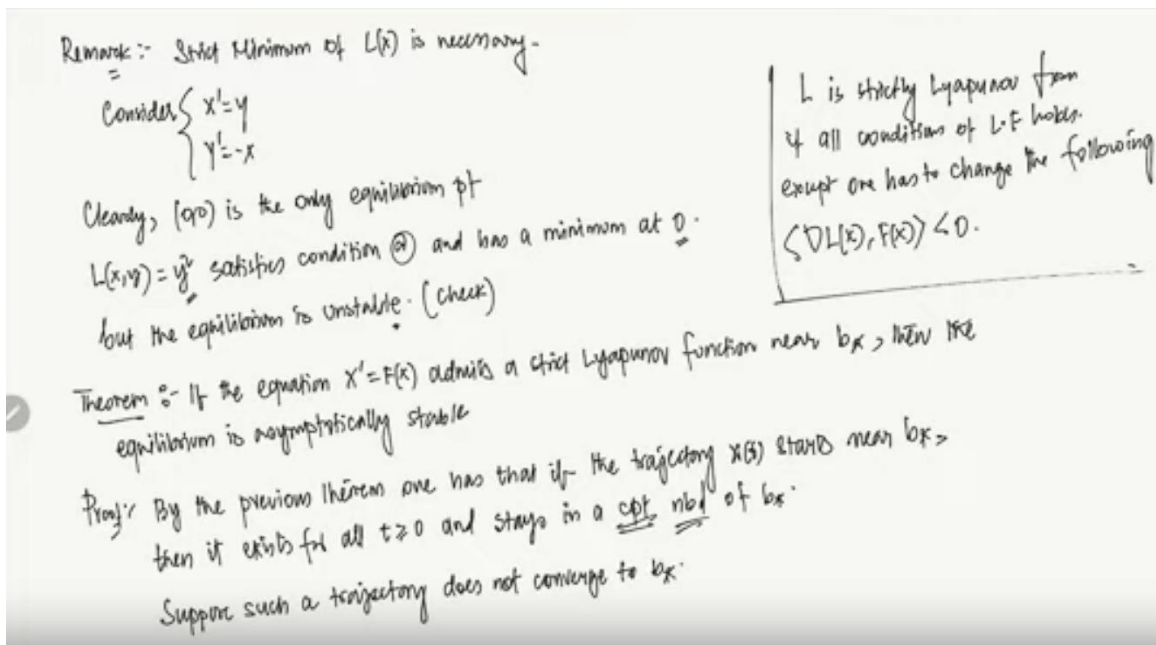 Remark :- Strict Minimum of L(x) is necessary.
Consider { x' = y
y' = -x
Clearly, (0,0) is the only equilibrium pt
L(x,y) = y² satisfies condition ② and has a minimum at 0.
but the equilibrium is unstable. (Check)
L is strictly Lyapunov
if all condition of L.F holds.
except one has to change the following
⟨DL(x), F(x)⟩ < 0.
Theorem :- If the equation x' = F(x) admits a strict Lyapunov function near b*, then the
equilibrium is asymptotically stable
Proof:- By the previous theorem one has that if the trajectory x(t) starts near b*,
then it exists for all t ≥ 0 and stays in a cpt nbd of b*.
Suppose such a trajectory does not converge to b*.